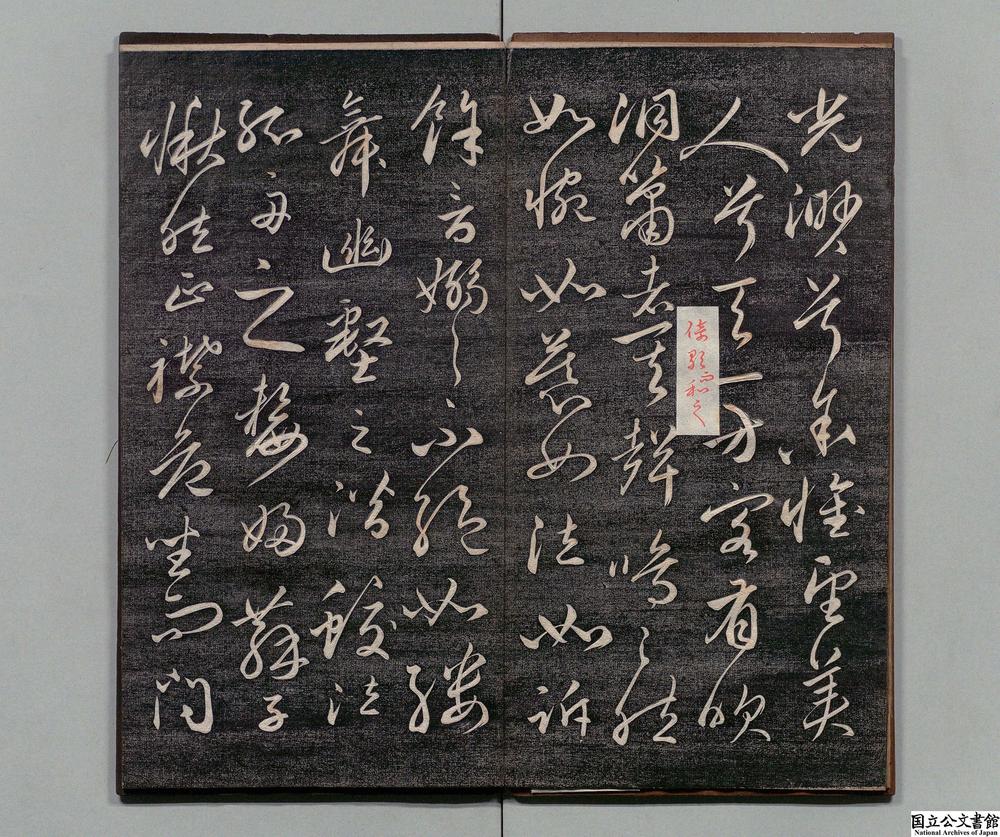 光渺兮余懷望美
人兮天一方客有吹
洞簫者其聲嗚〻然
倚歌而和之
如惋如慕如泣如訴
餘音嫋〻不絕如縷
舞幽壑之潛蛟泣
孤舟之嫠婦蘇子
愀然正襟危坐而問
国立公文書館
National Archives of Japan